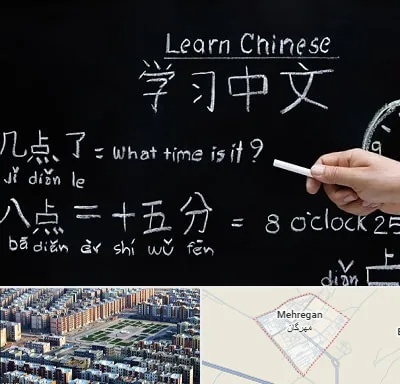 Learn Chinese
学习中文
几点了 = What time is it?
jǐ diǎn le
八点二十五分 = 8 o'clock 25
bā diǎn èr shí wǔ fēn
9
diǎn
Mehregan
مهرگان